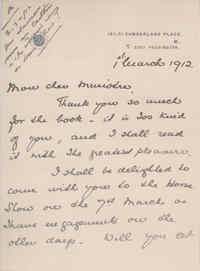 CUMBERLAND PLACE,
W.
PADDINGTON.
1st March 1912
My dear Minister,
Thank you so much
for the book - it is too kind
of you, and I shall read
it with the greatest pleasure.
I shall be delighted to
come with you to the Horse
Show on the 7th March as
I have engagements on the
other days. Will you